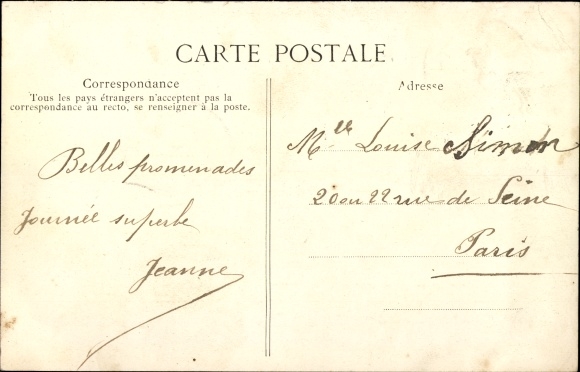 CARTE POSTALE
Correspondance
Tous les pays étrangers n'acceptent pas la
correspondance au recto, se renseigner à la poste.
Belles promenades
Journée superbe
Jeanne
Adresse
Mlle Louise Simon
20 ou 22 rue de Seine
Paris